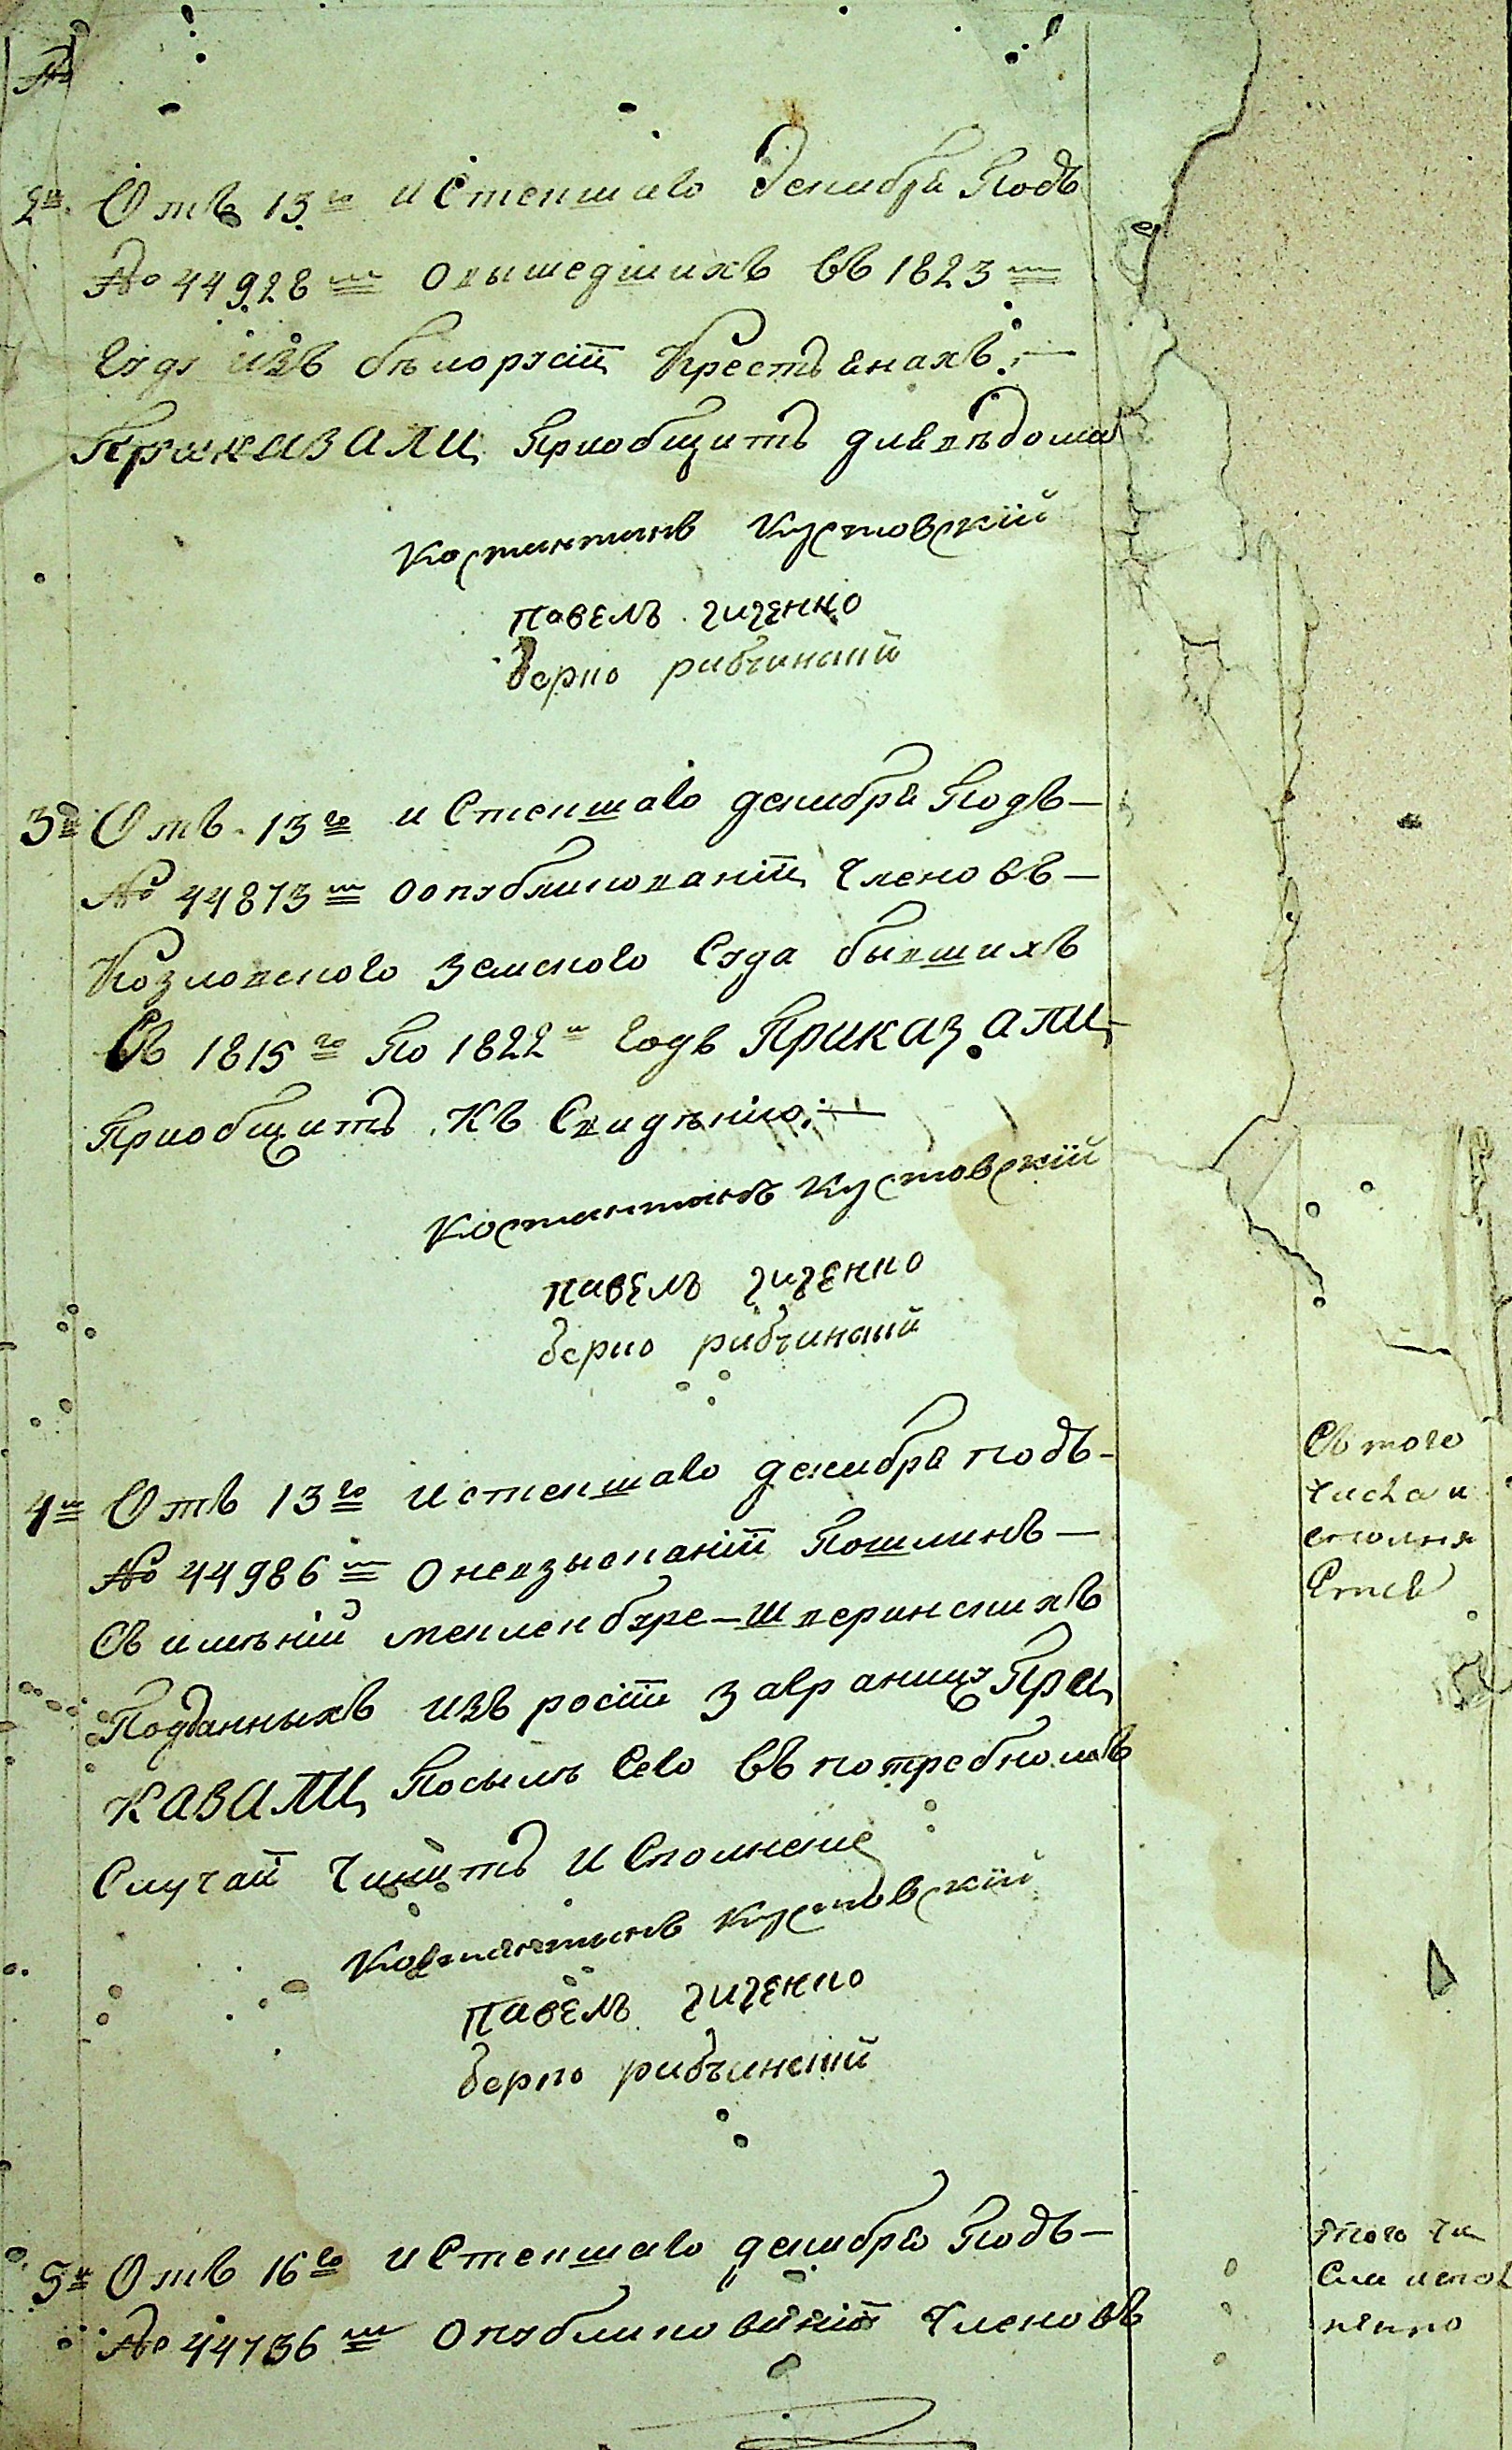 №
2й. Отъ 13го истекшаго декабря Подъ
№ 44928м овышедшихъ въ 1823м
году изъ бѣлорусіи Крестьянахъ:—
Приказали Приобщить длявѣдома
Костянтинъ Кустовскій
павелъ гиченко
верно рибчинский
3е Отъ 13го истекшаго декабря Подъ—
№ 44873м оопубликованіи Членовъ—
Козловского Земского Суда бывшихъ
Съ 1815го По 1822й годъ Приказали
Приобщить къ Свидѣнію:—
Костянтинъ Кустовскій
павелъ гиченко
верно рибчинский
4е Отъ 13го истекшаго декабря подъ—
№ 44986м Оневзысканіи Пошлинъ—
Съ имѣній мекленбург—Шверинскихъ
Подданныхъ изъ росіи заграницу При
казали Посылѣ Сего въ потребномъ
Случаи Чинить исполнение
Костянтинъ Кустовскій
павелъ гиченко
верно рибчинский
Съ того
числа и
сполня
Ется
5е Отъ 16го истекшаго декабря Подъ—
№ 44736м Опубликованіи Членовъ
Того Чи
Сла испол
нено